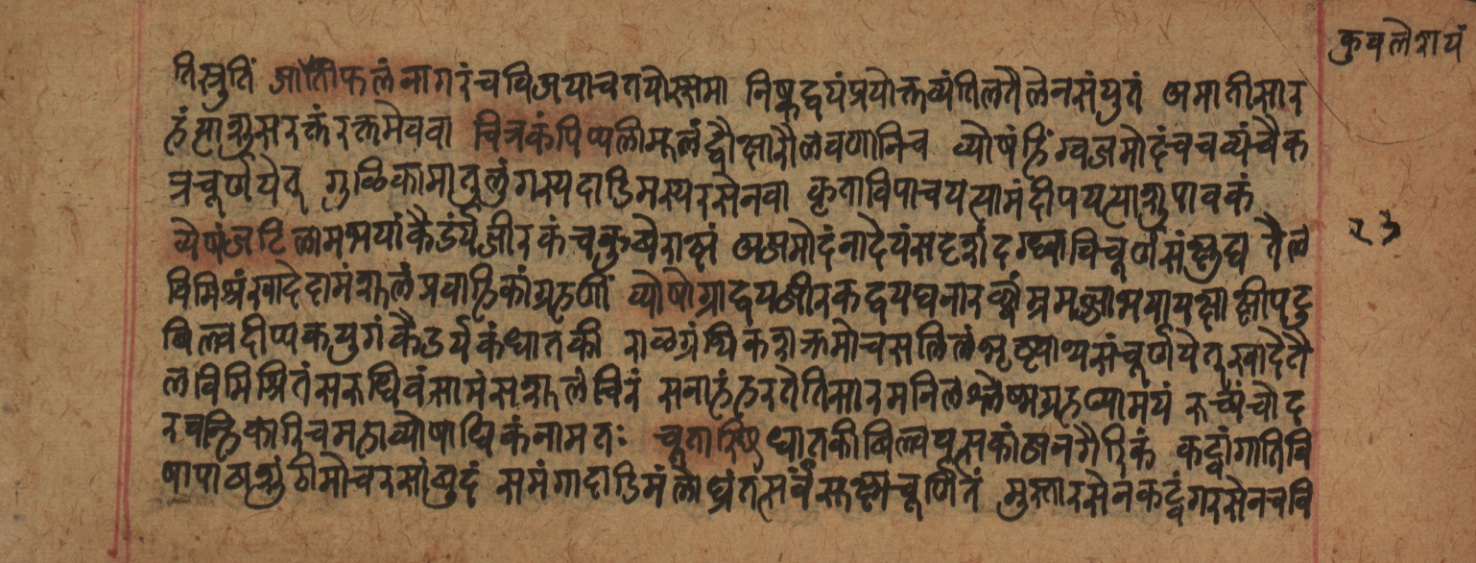 कुवलेशयं
तिस्रुतिं जातीफलं नागरं च विजया च तयोस्समा निष्कद्वयं प्रयोक्तव्यं तिलतैलेन संयुतं अमातीसार
हं साशुसरक्तं रक्तमेव वा चित्रकं पिप्पलीमूलं द्वौ क्षारौ लवणानि च व्योषं हिंग्वजमोदं च चव्यं चैक
त्र चूर्णयेत् गुळिका मातुलुंगस्य दाडिमस्य रसेन वा कृता विपाचयत्यामं दीपयत्याशु पावकं
जटिळामभयां कैडर्य जीरकं च कुबेराक्षं अजमोदं नादेयं सदृशं दग्ध्वा विचूर्ण तैल
विमिश्रं खादेदामशूलं प्रवाहिकां ग्रहणीं व्योषोग्राद्वयजीरकद्वयघना पटु
बिल्वदीप्यकयुगं कैडर्यकं धातकी राळग्रंथिकशक्रमोचसलिलं संचूर्णयेत् खादेत्तै
लविमिश्रितं सरुधिवं सामं सशूलं चिरं सनाहं हरतेतिसारमनिलश्लेष्मग्रहण्यामयं रुच्यं चोद
रवह्निकारि च महाव्योषादिकं नामतः धातकीबिल्व गैरिकं कट्वंगातिवि
षापाठाशुंठीमोचरसांबुदं समंगादाडिमं लोध्रं तत्सर्वं सूक्ष्मचूर्णितं मुस्तारसेन कट्वंगरसेन च वि
२३